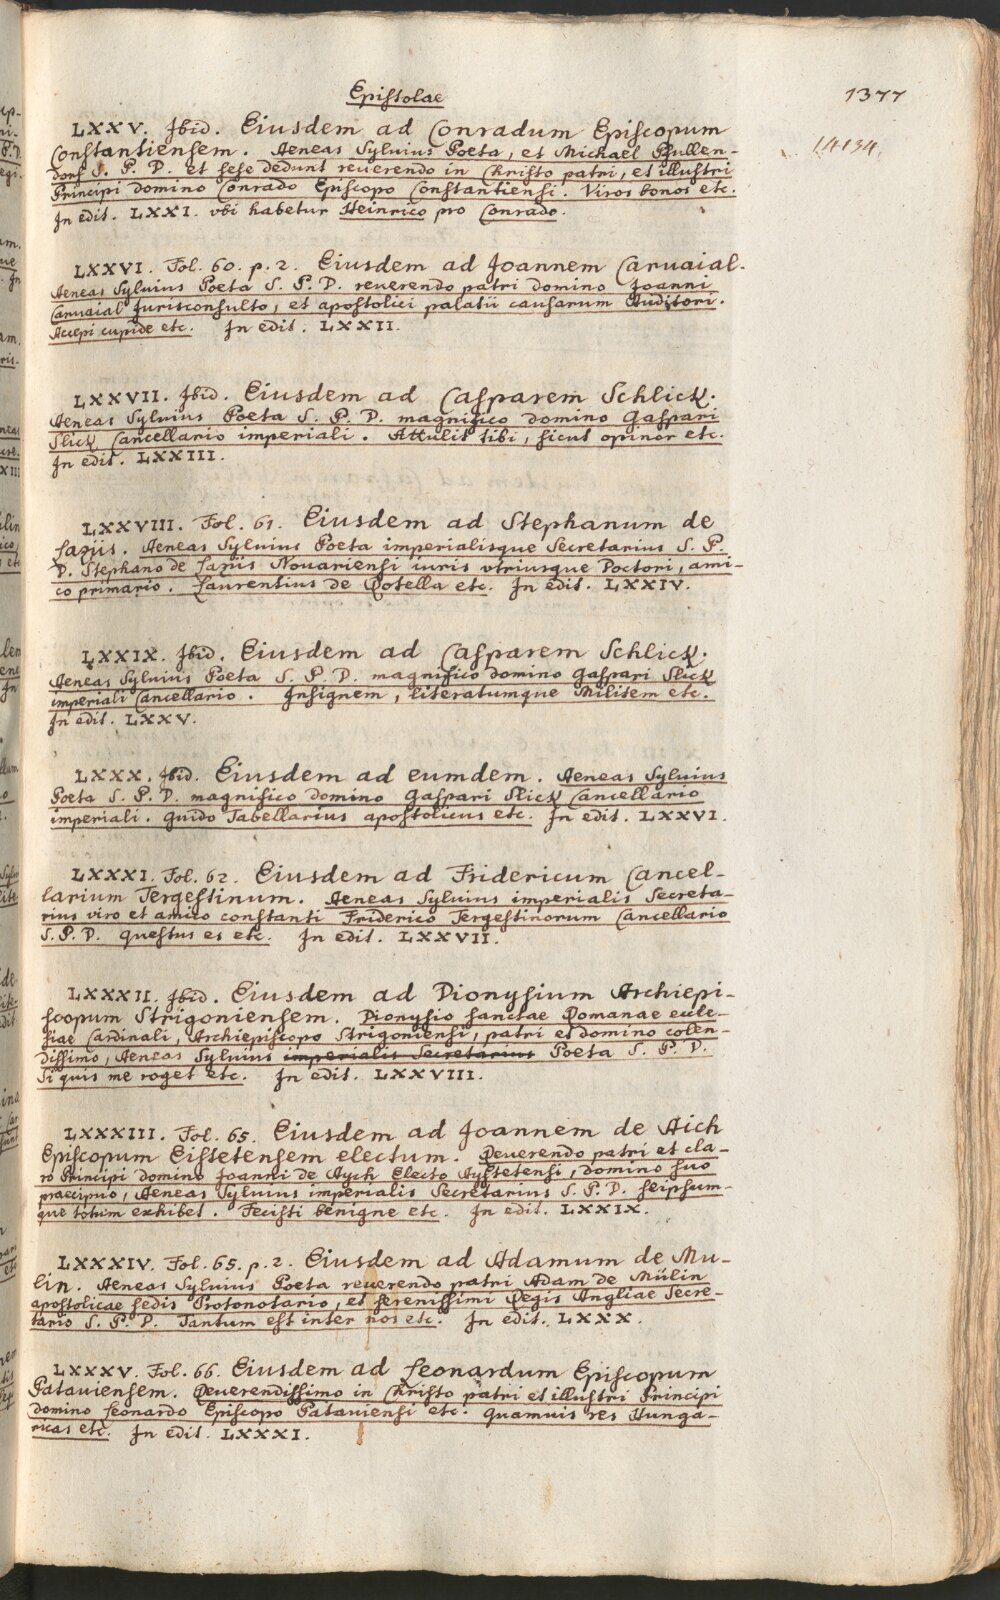 Epistolae
1377
14134.
LXXV. Ibid. Eiusdem ad Conradum Episcopum
Constantiensem. Aeneas Syluius Poeta, et Michael Pfullen-
dorf S. P. D. et sese dedunt reuerendo in Christo patri, et illustri
Principi domino Conrado Episcopo Constantiensi. Viros bonos etc.
In edit. LXXI. vbi habetur Heinrico pro Conrado.
LXXVI. Fol. 60. p. 2. Eiusdem ad Joannem Caruaial.
Aeneas Syluius Poeta S. P. D. reuerendo patri domino Joanni
Caruaial Jurisconsulto, et apostolici palatii causarum Auditori.
Accepi cupide etc. In edit. LXXII.
LXXVII. Ibid. Eiusdem ad Casparem Schlick.
Aeneas Syluius Poeta S. P. D. magnifico domino Gaspari
Slick Cancellario imperiali. Attulit tibi, sicut opinor etc.
In edit. LXXIII.
LXXVIII. Fol. 61. Eiusdem ad Stephanum de
Caziis. Aeneas Syluius Poeta imperialisque Secretarius S. P.
D. Stephano de Caziis Nouariensi iuris vtriusque Doctori, ami-
co primario. Laurentius de Rotella etc. In edit. LXXIV.
LXXIX. Ibid. Eiusdem ad Casparem Schlick.
Aeneas Syluius Poeta S. P. D. magnifico domino Gaspari Slick
imperiali Cancellario. Insignem, literatumque Militem etc.
In edit. LXXV.
LXXX. Ibid. Eiusdem ad eumdem. Aeneas Syluius
Poeta S. P. D. magnifico domino Gaspari Slick Cancellario
imperiali. Guido Tabellarius apostolicus etc. In edit. LXXVI.
LXXXI. Fol. 62. Eiusdem ad Fridericum Cancel-
larium Tergestinum. Aeneas Syluius imperialis Secreta-
rius viro et amico constanti Friderico Tergestinorum Cancellario
S. P. D. Questus es etc. In edit. LXXVII.
LXXXII. Ibid. Eiusdem ad Dionysium Archiepi-
scopum Strigoniensem. Dionysio sanctae Romanae eccle-
siae Cardinali, Archiepiscopo Strigoniensi, patri et domino colen-
dissimo, Aeneas Syluius imperialis Secretarius Poeta S. P. D.
Si quis me roget etc. In edit. LXXVIII.
LXXXIII. Fol. 65. Eiusdem ad Joannem de Aich
Episcopum Eistetensem electum. Reuerendo patri et cla-
ro Principi domino Joanni de Aych Electo Aystetensi, domino suo
praecipuo, Aeneas Syluius imperialis Secretarius S. P. D. seipsum-
que totum exhibet. Fecisti benigne etc. In edit. LXXIX.
LXXXIV. Fol. 65. p. 2. Eiusdem ad Adamum de Mu-
lin. Aeneas Syluius Poeta reuerendo patri Adam de Mülin
apostolicae sedis Protonotario, et serenissimi Regis Angliae Secre-
tario S. P. D. Tantum est inter nos etc. In edit. LXXX.
LXXXV. Fol. 66. Eiusdem ad Leonardum Episcopum
Patauiensem. Reuerendissimo in Christo patri et illustri Principi
domino Leonardo Episcopo Patauiensi etc. Quamuis res Hunga-
ricas etc. In edit. LXXXI.